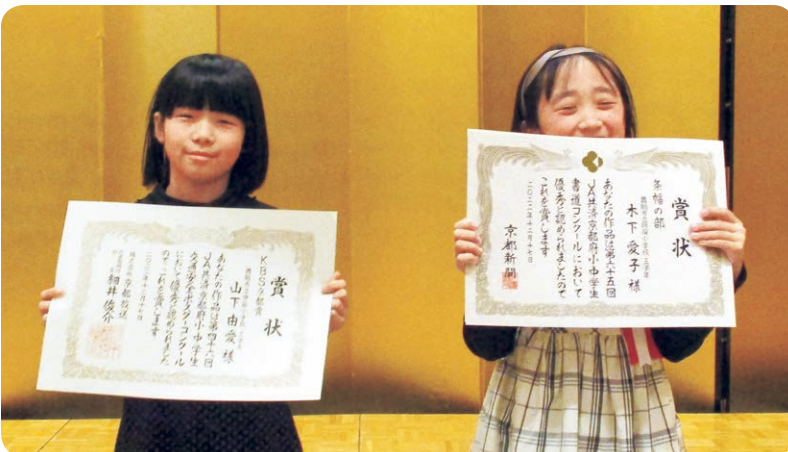 賞状
KBS京都賞
山下由愛 様
あなたの作品は第四十六回
JA共済京都府小中学生
交通安全ポスターコンクール
において優秀と認められました
のでこれを賞します
二〇二二年十二月十七日
京都放送
細井俊介
賞状
条幅の部
小学校五学年
木下愛子 様
あなたの作品は第六十五回
JA共済京都府小中学生
書道コンクールにおいて
優秀と認められましたので
これを賞します
二〇二二年十二月十七日
京都新聞